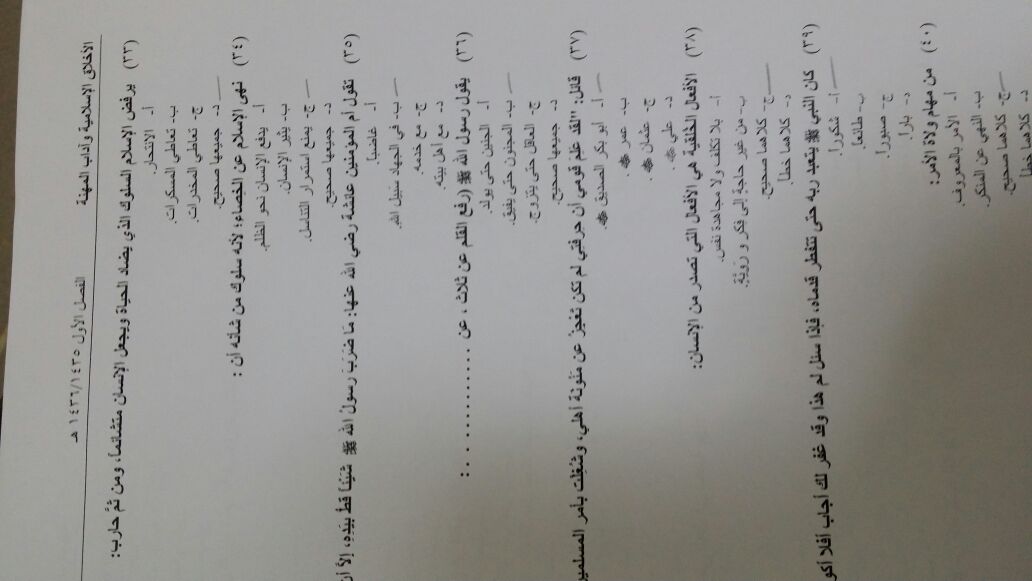 الأخلاق الإسلامية وآداب المهنة
الفصل الأول ١٤٣٦/١٤٣٥ هـ
(٣٣) يرفض الإسلام السلوك الذي يضاد الحياة ويجعل الإنسان متشائماً، ومن ثمَّ حارب:
أ- الانتحار.
ب- تعاطي المسكرات.
ج- تعاطي المخدرات.
د- جميعها صحيح.
(٣٤) نهى الإسلام عن الخصاء؛ لأنه سلوك من شأنه أن :
أ- يدفع الإنسان نحو الظلم.
ب- يثير الإنسان.
ج- يمنع استمرار التناسل.
د- جميعها صحيح.
(٣٥) تقول أم المؤمنين عائشة رضي الله عنها: مَا ضَرَبَ رسولُ الله ﷺ شَيْئاً قطُّ بيَدِهِ، إلاَّ أن
أ- غاضباً.
ب- في الجهاد سبيل الله.
ج- مع خدمه.
د- مع أهل بيته.
(٣٦) يقول رسول الله ﷺ (رفع القلم عن ثلاث، عن ............:
أ- الجنين حتى يولد.
ب- المجنون حتى يفيق.
ج- العاقل حتى يتزوج.
د- جميعها صحيح.
(٣٧) قائل: "لقد عَلِمَ قومي أن حِرفتي لم تكن تَعْجِزُ عن مَئونة أهلي، وشُغِلت بأمر المسلمين
أ- أبو بكر الصديق
ب- عمر
ج- عثمان
د- علي
(٣٨) الأفعال الخُلقيَّة هي الأفعال التي تصدر من الإنسان:
أ- بلا تكلف ولا مجاهدة نفس.
ب- من غير حاجةٍ إلى فِكر و رَويَّة.
ج- كلاهما صحيح.
د- كلاهما خطأ.
(٣٩) كان النبي ﷺ يتعبد ربه حتى تتفطر قدماه، فإذا سئل لم هذا وقد غفر لك أجاب أفلا أكو
أ- شكوراً.
ب- طائعاً.
ج- صبوراً.
د- باراً.
(٤٠) من مهام ولاة الأمر:
أ- الأمر بالمعروف.
ب- النهي عن المنكر.
ج- كلاهما صحيح.
د- كلاهما خطأ